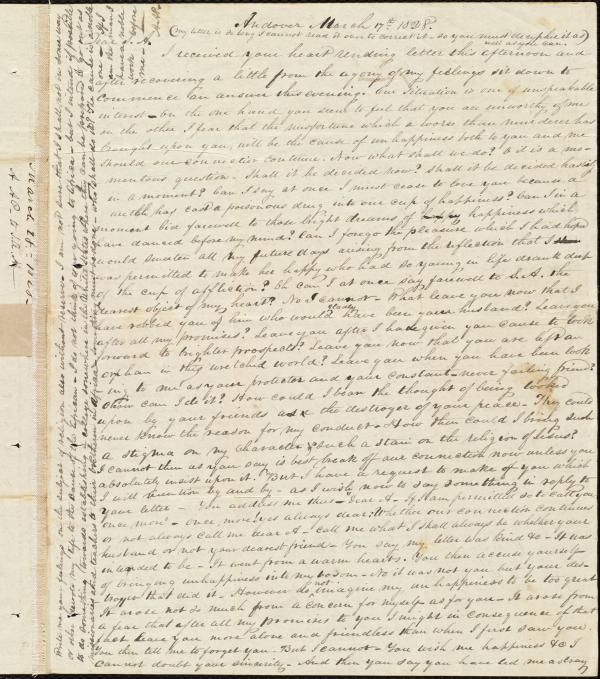 Andover March 17th 1828.
(my letter is so long I cannot read it over to correct it - so you must decipher it as
well as you can.)
Dear S.A.
I received your heart rending letter this afternoon and
after recovering a little from the agony of my feelings sit down to
commence an answer this evening. Our situation is one of unspeakable
interest - on the one hand you seem to feel that you are unworthy of me
in the other I fear that the misfortune which a worse than murderer has
brought upon you, will be the cause of unhappiness both to you and me
should our connection continue. Now what shall I do? It is a mo-
mentous question. Shall it be decided now? Shall it be decided hastily
in a moment? Can I say at once I must cease to love you because a
wretch has cast a poisonous drug into our cup of happiness? Can I in a
moment bid farewell to those bright dreams of happiness which
have danced before my mind? Can I forego the pleasure which I had hoped
would sweeten all my future days arising from the reflection that I
was permitted to make her happy who had so young in life drank deep
of the cup of affliction? Oh can I at once say farewell to S.A. the
dearest object of my heart? No I cannot. What leave you now that I
have robbed you of him who would have been your husband? Leave you
after all my promises? Leave you after I have given you cause to look
forward to brighter prospects? Leave you now that you are left an
orphan in this wretched world? Leave you when you have been look
ing to me as your protector and your constant - never failing friend?
O how can I do it? How could I bear the thought of being looked
upon by your friends as the destroyer of your peace - They could
never know the reason for my conduct - How then could I bring such
a stigma on my character & such a stain on the religion of Jesus?
I cannot then as you say is best break off our connection now unless you
absolutely insist upon it. But I have a request to make of you which
I will mention by and by - as I wish now to say something in reply to
your letter - You address me thus - Dear A - If I am permitted so to call you
once more - once more, yes always dear. Whether our connection continues
or not always call me dear A - call me what I shall always be whether your
husband or not your dearest friend - You say my letter was kind &c - It was
intended to be - It went from a warm heart. You then accuse yourself
of bringing unhappiness into my bosom - No it was not you but your des-
troyer that did it - However do not imagine my unhappiness to be too great
It arose not so much from a concern for myself as for you - It arose from
a fear that after all my promises to you I might in consequence of that
act leave you more alone and friendless than when I first saw you
You then tell me to forget you - But I cannot - You wish me happiness &c I
cannot doubt your sincerity - And then you say you have led me astray
Write me your feelings on the subject of religion also without reserve
March 28 - 1828